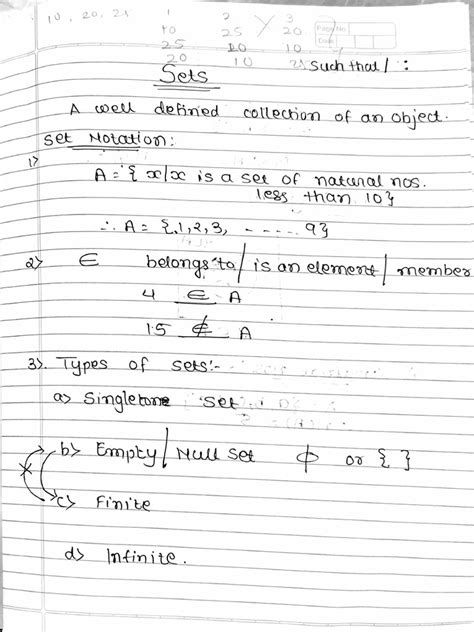 10, 20, 21
1 2 3
10 25 20
25 20 10
20 10
Page No.
Date
Such that / :
Sets
A well defined collection of an object.
Set Notation:
1)
A = { x/x is a set of natural nos.
less than 10}
∴ A = {1, 2, 3, - - - - - 9}
2) ∈ belongs to / is an element / member
4 ∈ A
1.5 ∉ A
3). Types of sets:-
a) Singletone set
b) Empty / Null set ϕ or { }
c) Finite
d) Infinite.